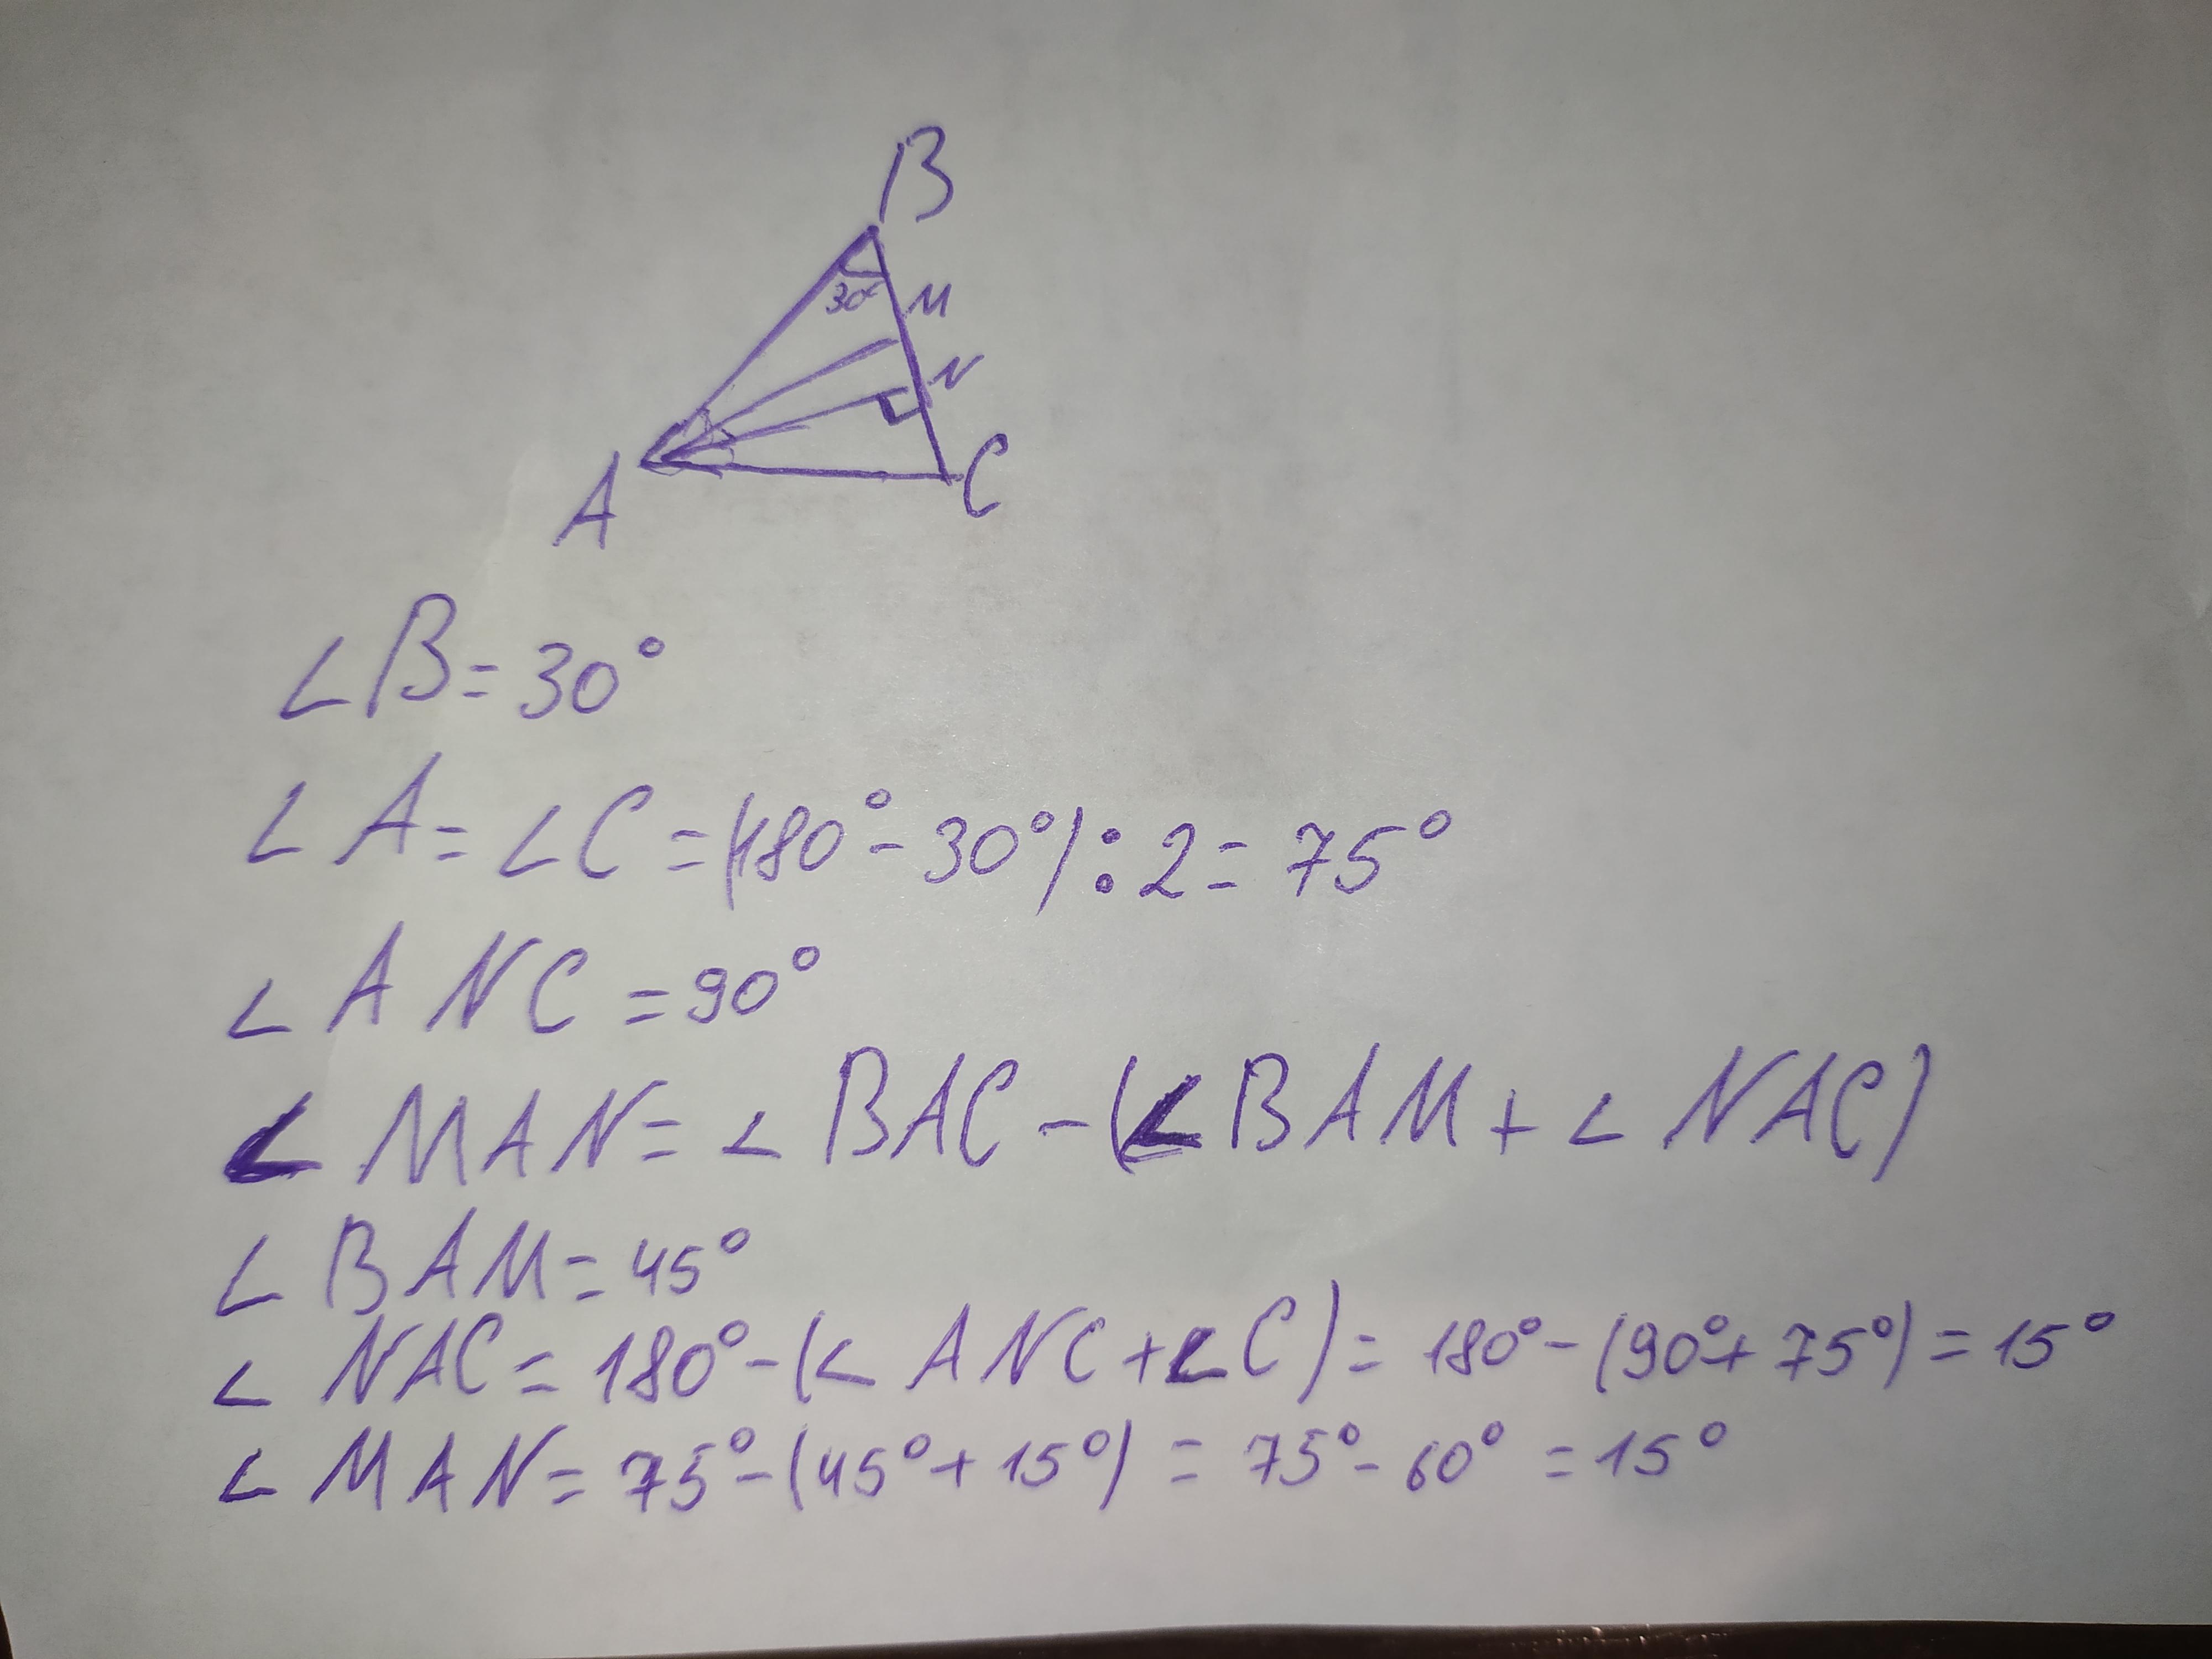 B
30°
M
N
A
C
∠B = 30°
∠A = ∠C = (180° - 30°) : 2 = 75°
∠ANC = 90°
∠MAN = ∠BAC - (∠BAM + ∠NAC)
∠BAM = 45°
∠NAC = 180° - (∠ANC + ∠C) = 180° - (90° + 75°) = 15°
∠MAN = 75° - (45° + 15°) = 75° - 60° = 15°